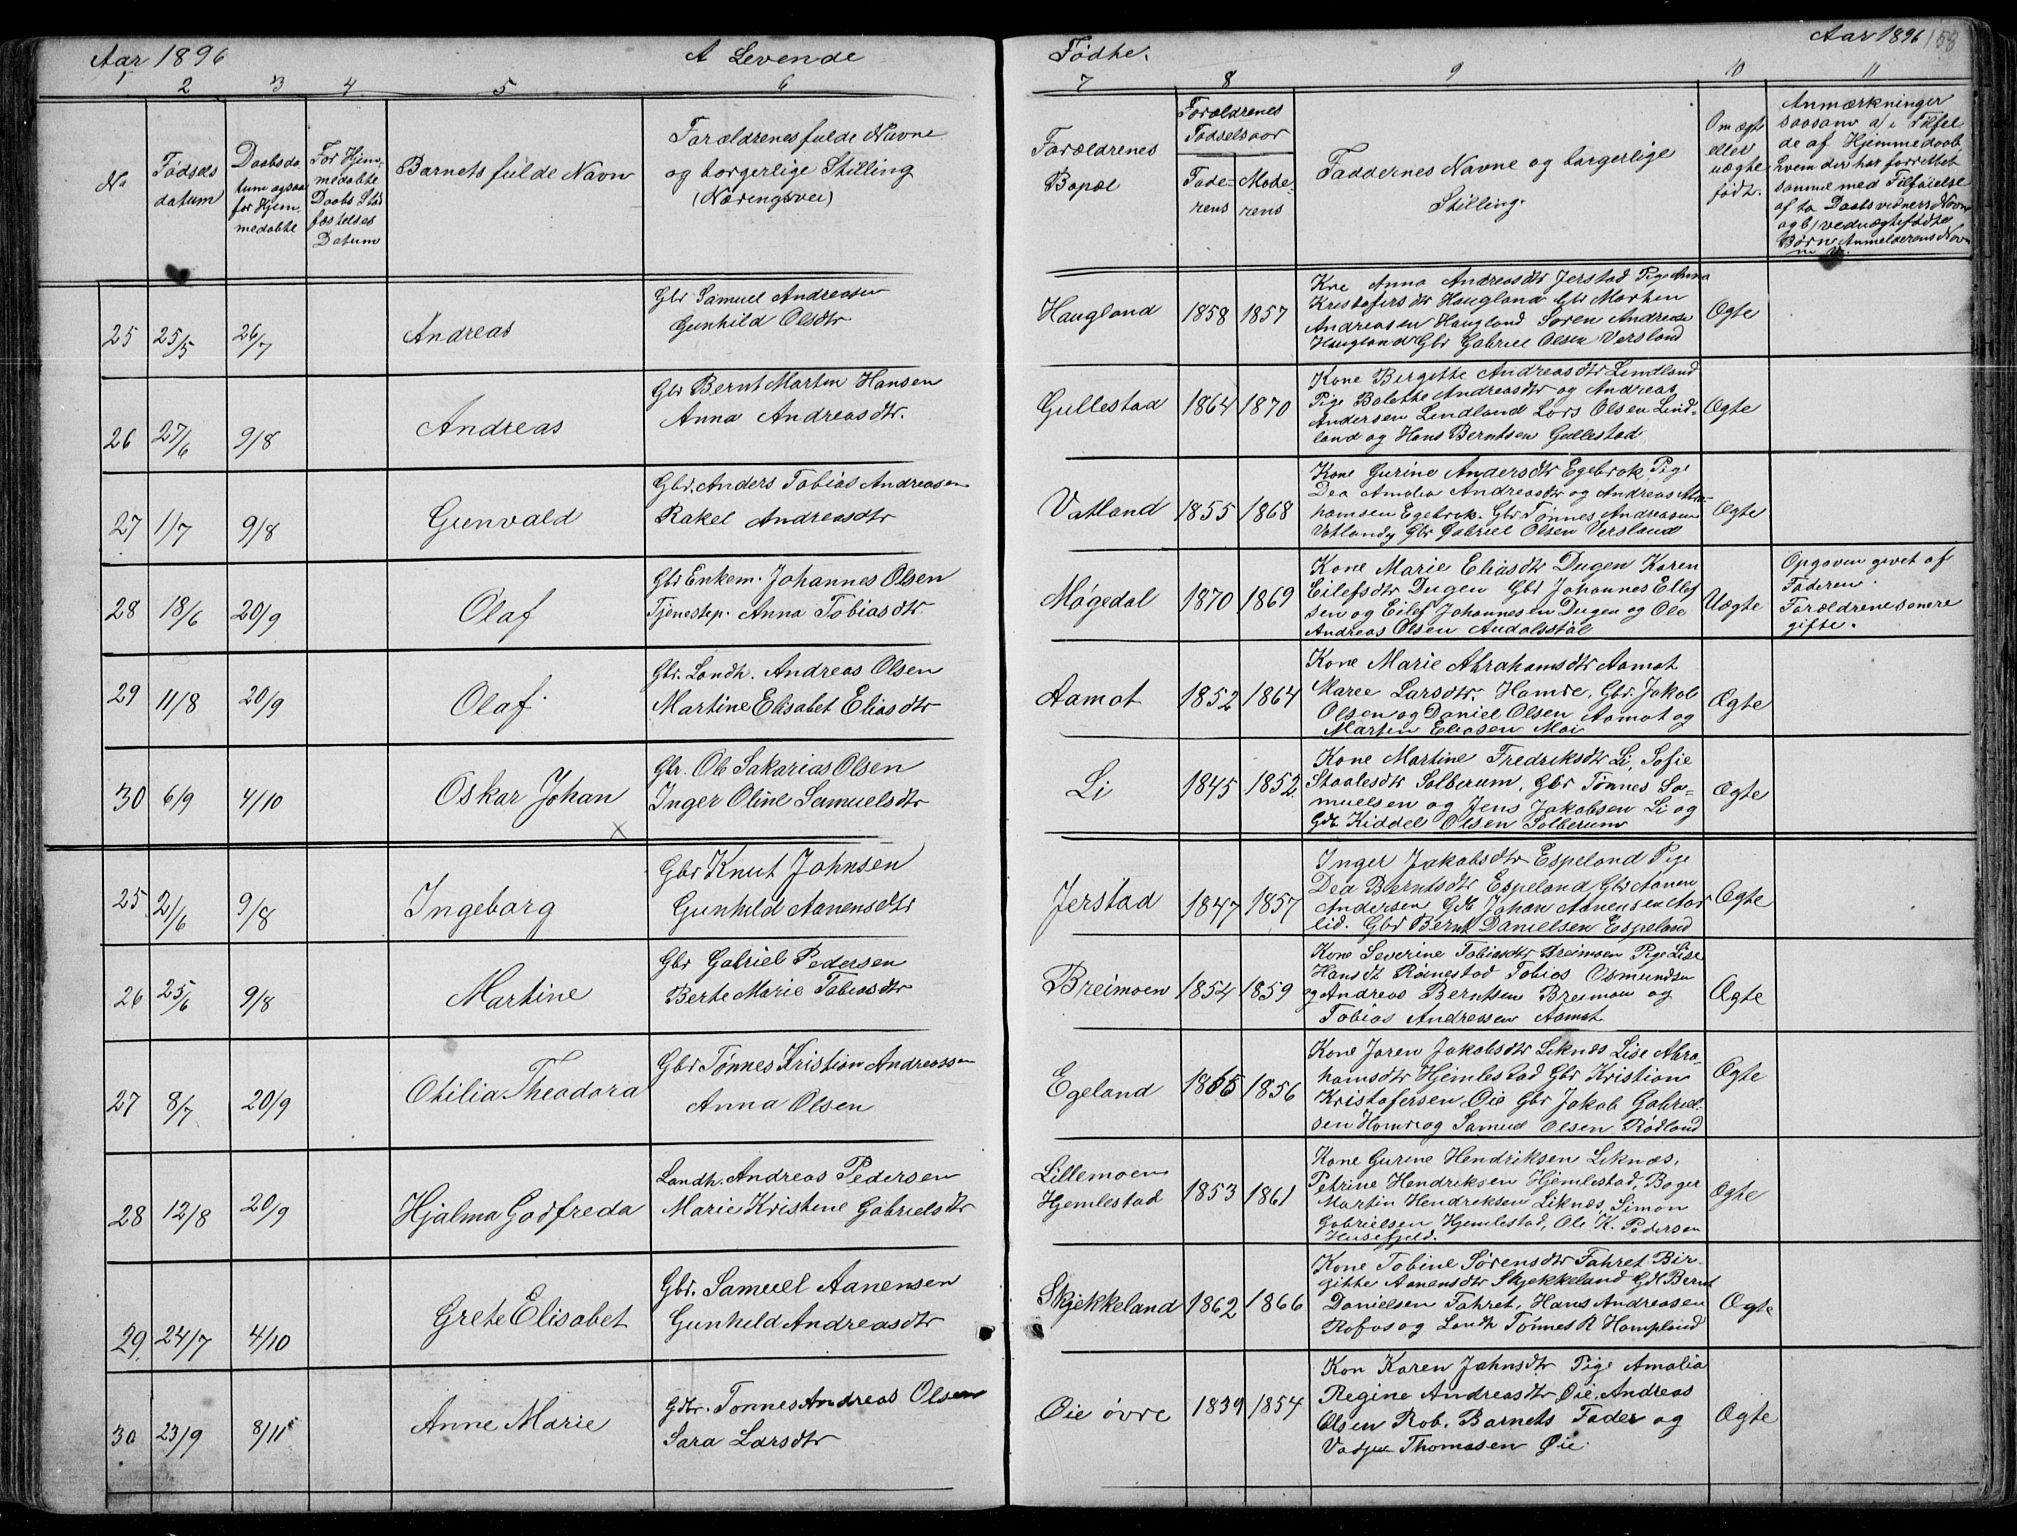 Aar 1896
A Levende
Fødte.
Aar 1896
158
1 2 3 4 5 6 7 8 9 10 11
No
Fødsels
datum
Daabsda
tum ogsaa
for Hjem
medøbte
For Hjem
medøbte
Daabs Stad
fæstelses
Datum
Barnets fulde Navn
Forældrenes fulde Navne
og borgerlige Stilling
(Næringsvei)
Forældrenes
Bopæl
Forældrenes
Fødselsaar
Fade-
rens
Mode-
rens
Faddernes Navne og borgerlige
Stilling.
Om ægte
eller
uægte
født.
Anmærkninger
saasom a) i Tilfæl
de af Hjemmedaab,
hvem der har forrettet
samme med Tilføielse
af to Daabsvidners Navne
og b) ved uægtefødte
Børn Anmelderens Nav
25 25/5 26/7 Andreas
Gbr Samuel Andreasen
Gunhild Olsdtr
Haugland 1858 1857
Kne Anna Andreasdtr Jerstad Pige Anna
Kristofersdtr Haugland Gbr Morten
Andreasen Haugland Søren Andreas
Haugland Gbr Gabriel Olsen Versland
Ægte
26 27/6 9/8 Andreas
Gbr Bernt Martin Hansen
Anna Andreasdtr.
Gullestad 1864 1870
Kone Birgitte Andreasdtr Lindland
Pige Bolette Andreasdtr og Andreas
Andersen Lindland Lars Olsen Lind-
land og Hans Berntsen Gullestad
Ægte
27 1/7 9/8 Gunvald
Gbr. Anders Tobias Andreasen
Rakel Andreasdtr
Vatland 1855 1868
Kone Gurine Andersdtr Egebrok Pige
Dea Amalia Andreasdtr og Andreas Abra-
hamsen Egebrok. Gbr Tønnes Andreasen
Vatland og Gbr Gabriel Olsen Versland
Ægte
28 18/6 20/9 Olaf
Gbr Enkem. Johannes Olsen
Tjenestep. Anna Tobiasdtr
Møgedal 1870 1869
Kone Marie Eliasdtr Dugen Karen
Eilefsdtr Dugen Gbr Johannes Ellef
sen og Eilef Johannesen Dugen og Ole
Andreas Olsen Audalsstøl
Uægte
Opgaven givet af
Faderen.
Forældrene senere
gifte.
29 11/8 20/9 Olaf.
Gbr. Landh. Andreas Olsen
Martine Elisabet Eliasdtr
Aamot 1852 1864
Kone Marie Abrahamsdtr Aamot
Maree Larsdtr. Homre, Gbr. Jakob
Olsen og Daniel Olsen Aamot og
Martin Eliasen Moi
Ægte
30 6/9 4/10 Oskar Johan
Gbr. Ole Sakarias Olsen
Inger Oline Samuelsdtr
Li 1845 1852
Kone Martine Fredriksdtr Li, Sofie
Staalesdtr Solberum, Gbr Tønnes Sa-
muelsen og Jens Jakobsen Li og
Gdt. Kiddel Olsen Solberum
Ægte
x
25 2/6 9/8 Ingeborg
Gbr Knut Johnsen
Gunhild Aanensdtr
Jerstad 1847 1857
Inger Jakobsdtr Espeland Pige
Dea Berntsdtr Espeland Gbr Aanen
Andersen Gdt Johan Aanensen Aar
lid. Gbr Bernt Danielsen Espeland
Ægte
26 25/6 9/8 Martine
Gbr Gabriel Pedersen
Berte Marie Tobiasdtr
Breimoen 1854 1859
Kone Severine Tobiasdtr Breimoen Pige Lise
Hansdt Røinestad Tobias Osmundsen
og Andreas Berntsen Breimoen og
Tobias Andreasen Aamot.
Ægte
27 8/7 20/9 Otilia Theodora
Gbr Tønnes Kristian Andreassen
Anna Olsen
Egeland 1865 1856
Kone Joren Jakobsdtr Liknes Lise Abra-
hamsdtr Hjemlestad Gbr Kristian
Kristofersen Øie Gbr Jakob Gabriel-
sen Homre og Samuel Olsen Rødland
Ægte
28 12/8 20/9 Hjalma Godfreda
Landh. Andreas Pedersen
Marie Kristine Gabrielsdtr
Lillemoen
Hjemlestad 1853 1861
Kone Gurine Hendriksen Liknes,
Petrine Hendriksen Hjemlestad, Bager
Martin Hendriksen Liknes, Simon
Gabrielsen Hjemlestad, Ole K. Pedersen
Husefjeld.
Ægte
29 24/7 4/10 Grete Elisabet
Gbr. Samuel Aanensen
Gunhild Andreasdtr
Skjekkeland 1862 1866
Kone Tobine Sørensdtr Fahret Bir-
gitte Aanensdtr Skjekkeland Gdt Bernt
Danielsen Fahret, Hans Andreasen
Rofos og Landh Tønnes R Hompland
Ægte
30 23/9 8/11 Anne Marie
Gdtr. Tønnes Andreas Olsen
Sara Larsdtr
Øie øvre 1839 1854
Kon Karen Jahnsdtr Pige Amalia
Regine Andreasdtr Øie, Andreas
Olsen Rob. Barnets Fader og
Thomasen Øie.
Ægte